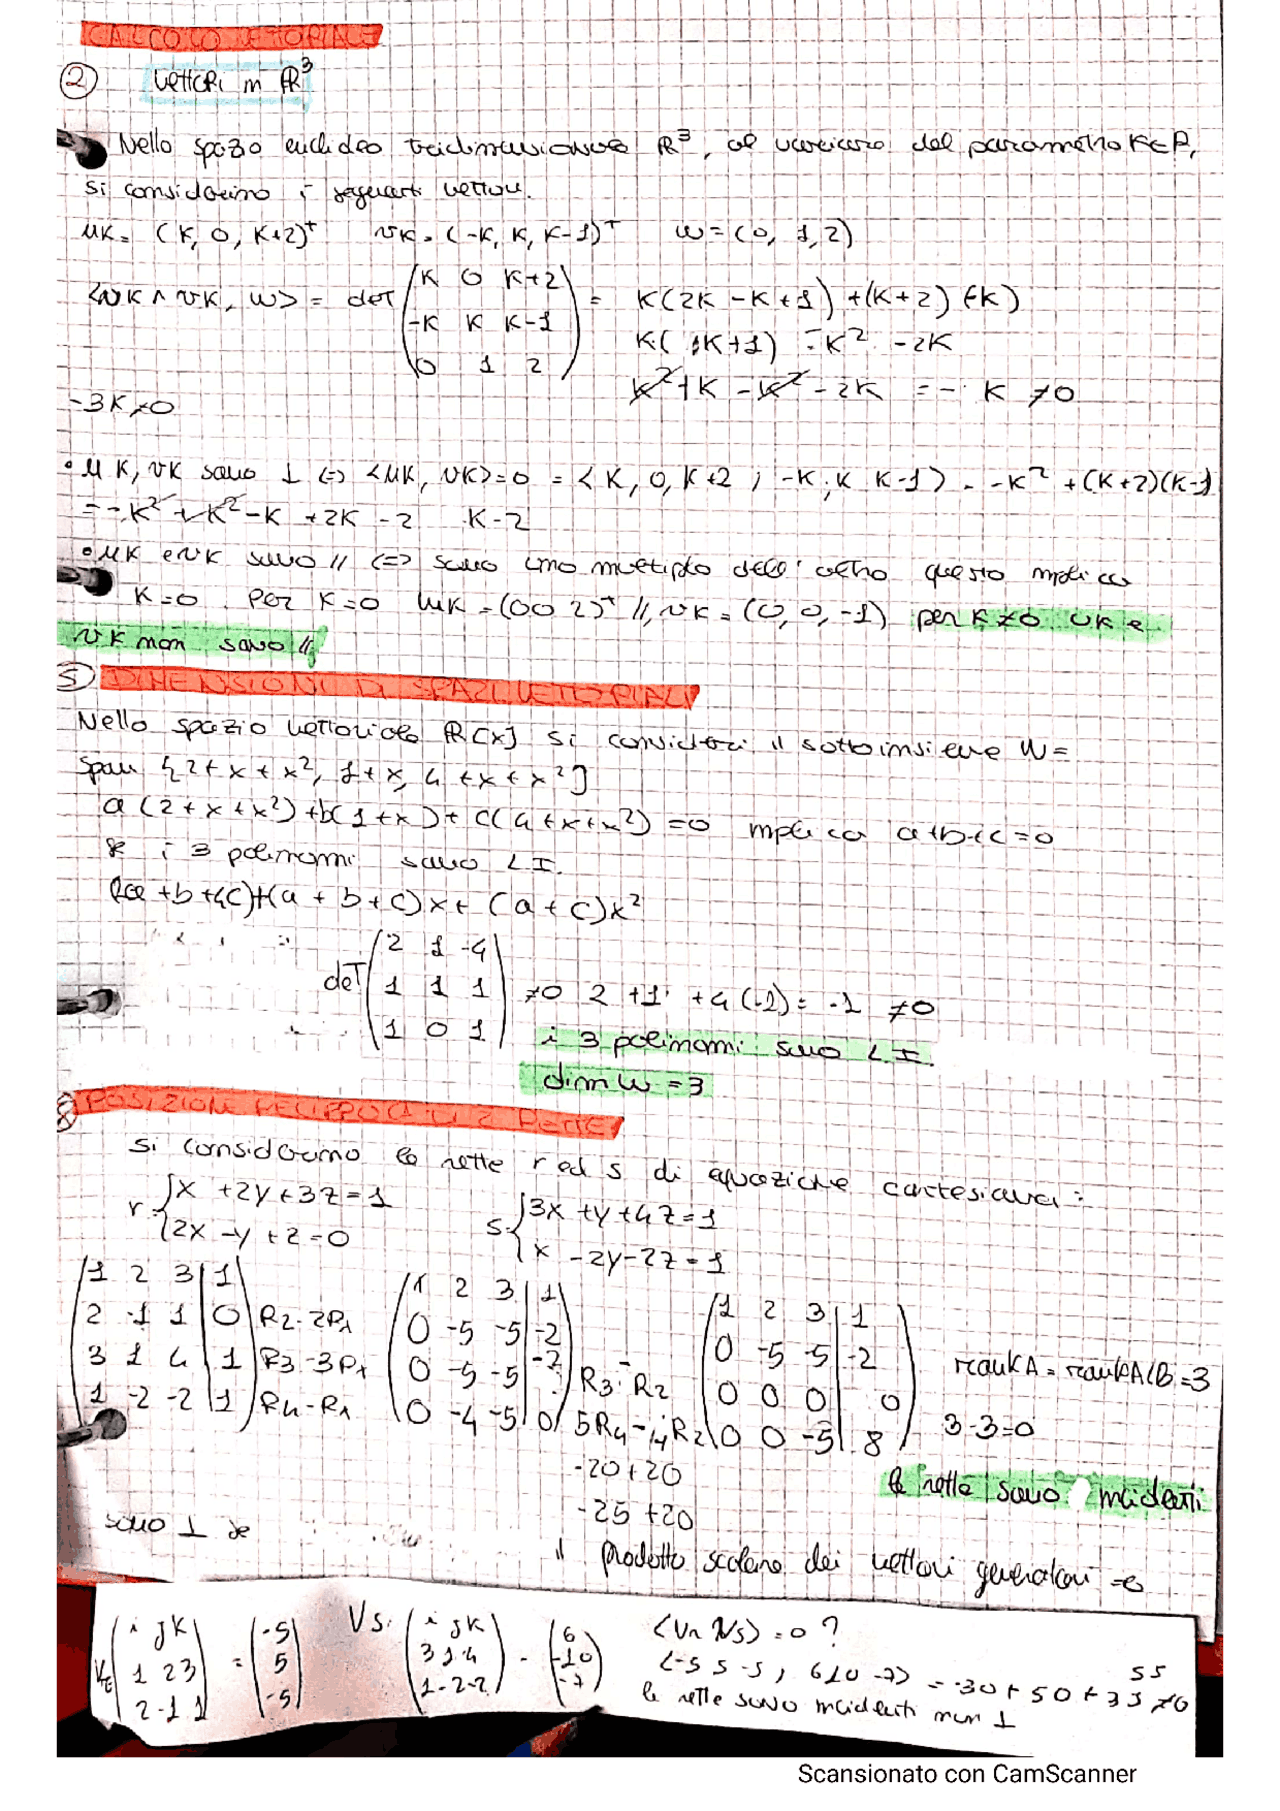 CALCOLO VETTORIALE
2 vettori in R³
Nello spazio euclideo tridimensionale R³, al variare del parametro K∈R,
si considerino i seguenti vettori.
uK = (K, 0, K+2)ᵗ vK = (-K, K, K-1)ᵀ w = (0, 1, 2)
<uK ∧ vK, w> = det (K 0 K+2 = K(2K - K + 1) + (K+2)(-K)
-K K K-1 K( 1K+1) = K² - 2K
0 1 2) K² + K - K² - 2K = - K ≠0
-3K≠0
• uK, vK sono ⊥ ⇔ <uK, vK>=0 = <K, 0, K+2 ; -K, K K-1> = -K² + (K+2)(K-1)
= -K² + K² - K + 2K - 2 K-2
• uK e vK sono // ⇔ sono uno multiplo dell'altro questo implica
K=0. Per K=0 uK = (0 0 2)ᵗ //, vK = (0, 0, -1) per K≠0 uK e
vK non sono //
5 DIMENSIONI DI SPAZI VETTORIALI
Nello spazio vettoriale R[x] si consideri il sottoinsieme W =
Span {2+x+x², 1+x, 4+x+x²}
a(2+x+x²)+b(1+x)+c(4+x+x²)=0 implica a+b+c=0
se i 3 polinomi sono L.I.
(2a+b+4c)+(a+b+c)x+(a+c)x²
det (2 1 -4
1 1 1 ≠0 2 +1 +4(-1) = -1 ≠0
1 0 1) i 3 polinomi sono L.I.
dim W = 3
8 POSIZIONI RECIPROCA DI 2 RETTE
Si considerano le rette r ed s di equazione cartesiana:
r {x+2y+3z=1 s {3x+y+4z=1
2x-y+z=0 x-2y-2z=1
(1 2 3|1 (1 2 3|1 (1 2 3|1
2 -1 1|0) R2-2R1 0 -5 -5|-2 0 -5 -5|-2 rankA = rankA|B = 3
3 1 4|1 R3-3R1 0 -5 -5|-2 R3-R2 0 0 0|0
1 -2 -2|1) R4-R1 0 -4 -5|0) 5R4-4R2 0 0 -5|8) 3-3=0
-20+20 le rette sono incidenti
-25+20
sono ⊥ se il prodotto scalare dei vettori generatori =0
Vr (i j k Vs. (i j k <Vr Vs> = 0 ?
1 2 3 = (-5 5 -5) 3 1 4 = (6 -10 -7) <-5 5 -5, 6 10 -7> = -30 + 50 + 35 ≠0
2 -1 1) 1 -2 -2) le rette sono incidenti non ⊥
55
Scansionato con CamScanner